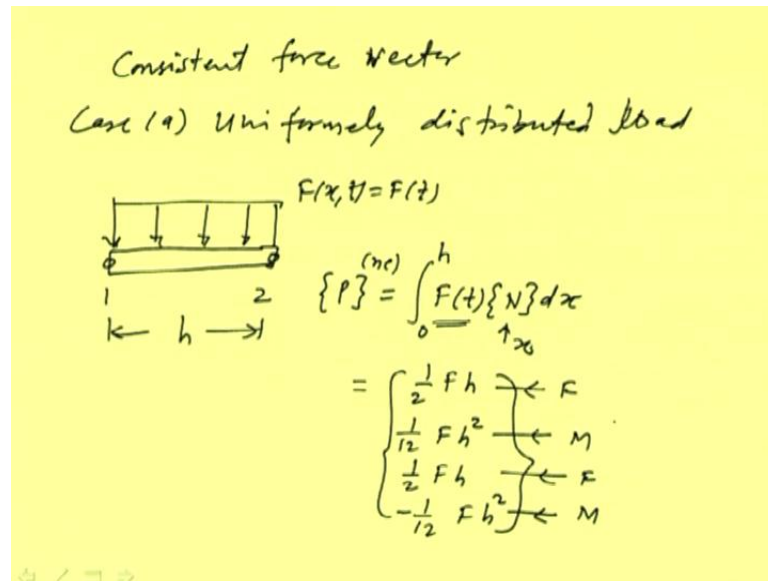 Consistent force Vector
Case (a) Uniformely distributed load
F(x,t)=F(t)
1 2
h
{P}^(ne) = ∫_0^h F(t){N}dx
x
= { 1/2 Fh } ← F
1/12 Fh^2 ← M
1/2 Fh ← F
-1/12 Fh^2 ← M